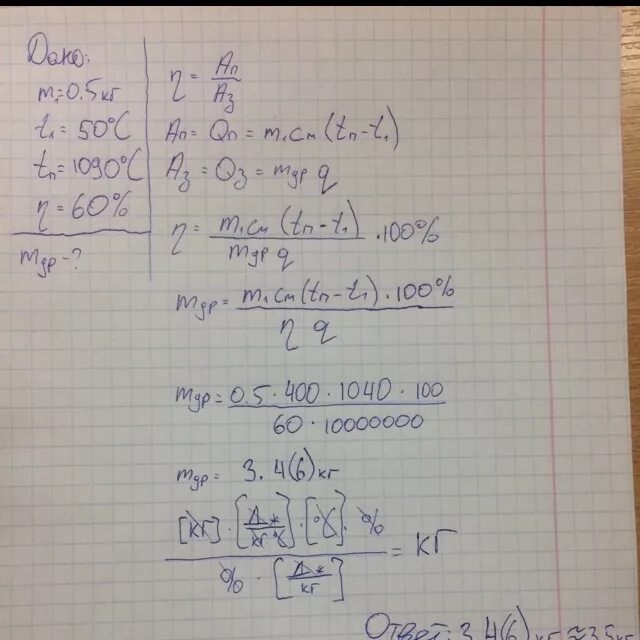 Дано:
m₁=0.5кг
t₁=50°C
tп=1090°C
η=60%
mдр-?
η = Aп/Aз
Aп = Qп = m₁cм(tп-t₁)
Aз = Qз = mдр q
η = m₁cм(tп-t₁)/mдр q · 100%
mдр = m₁cм(tп-t₁)·100%/η q
mдр = 0.5·400·1040·100/60·10000000
mдр = 3.4(6)кг
[кг]·[Дж/кг°C]·[°C]·%/%·[Дж/кг] = кг
Ответ: 3.4(6)кг≈3.5